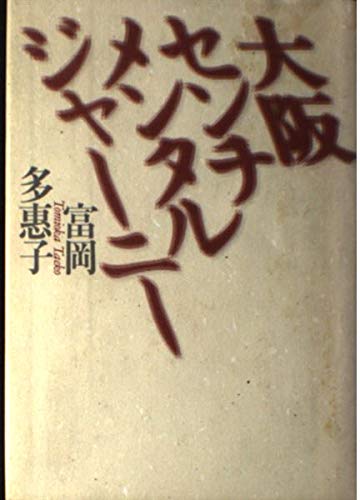 大阪
センチ
メンタル
ジャーニー
富岡
多惠子
Tomioka Taeko